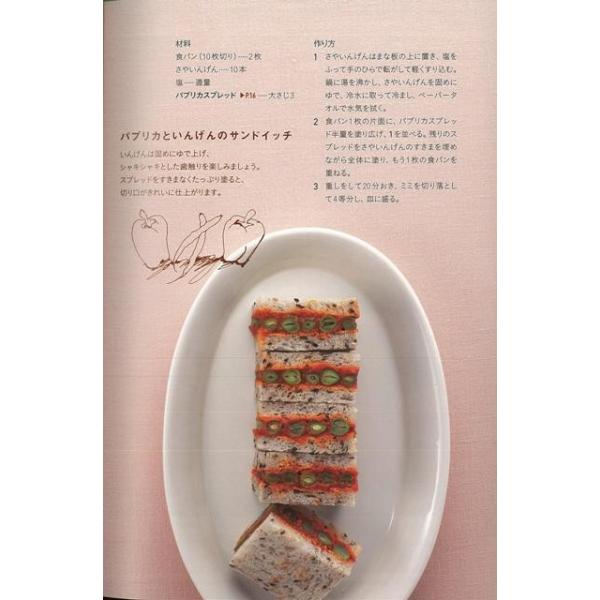 材料
食パン(10枚切り)──2枚
さやいんげん──10本
塩──適量
パプリカスプレッド ▶P.16──大さじ3
パプリカといんげんのサンドイッチ
いんげんは固めにゆで上げ、
シャキシャキとした歯触りを楽しみましょう。
スプレッドをすきまなくたっぷり塗ると、
切り口がきれいに仕上がります。
作り方
1 さやいんげんはまな板の上に置き、塩を
ふって手のひらで転がして軽くすり込む。
鍋に湯を沸かし、さやいんげんを固めに
ゆで、冷水に取って冷まし、ペーパータ
オルで水気を拭く。
2 食パン1枚の片面に、パプリカスプレッ
ド半量を塗り広げ、1を並べる。残りのス
プレッドをさやいんげんのすきまを埋め
ながら全体に塗り、もう1枚の食パンを
重ねる。
3 重しをして20分おき、ミミを切り落とし
て4等分し、皿に盛る。